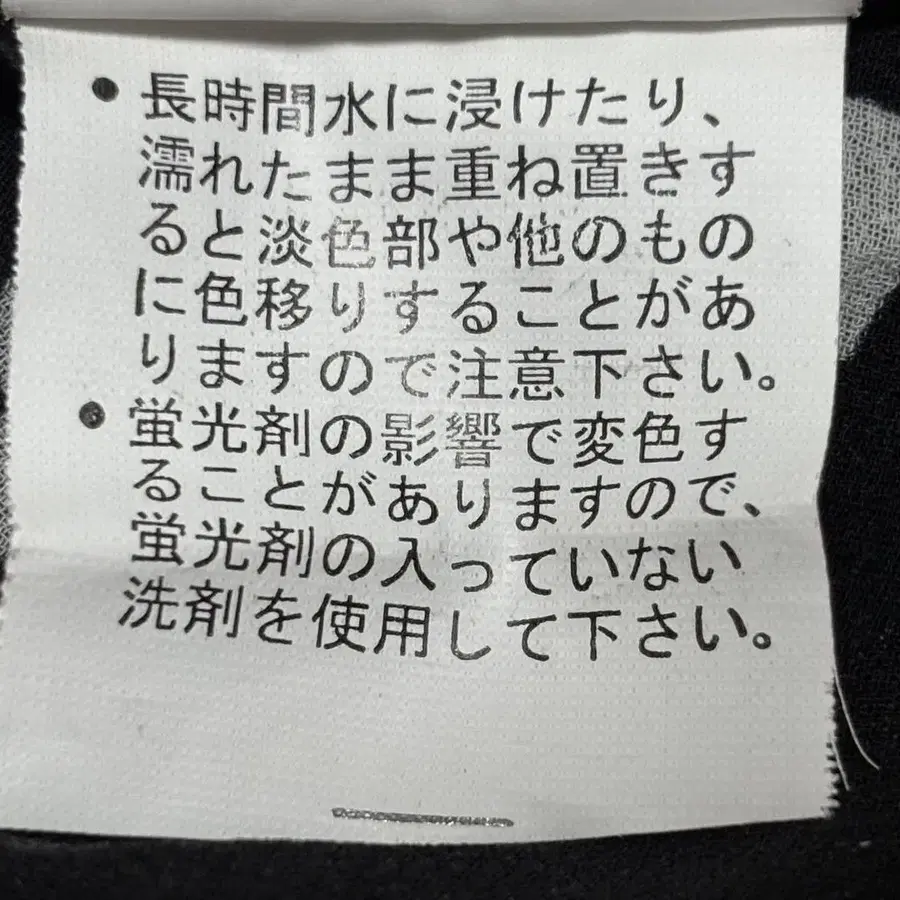 ●長時間水に浸けたり、
濡れたまま重ね置きす
ると淡色部や他のもの
に色移りすることがあ
りますので注意下さい。
●蛍光剤の影響で変色す
ることがありますので、
蛍光剤の入っていない
洗剤を使用して下さい。